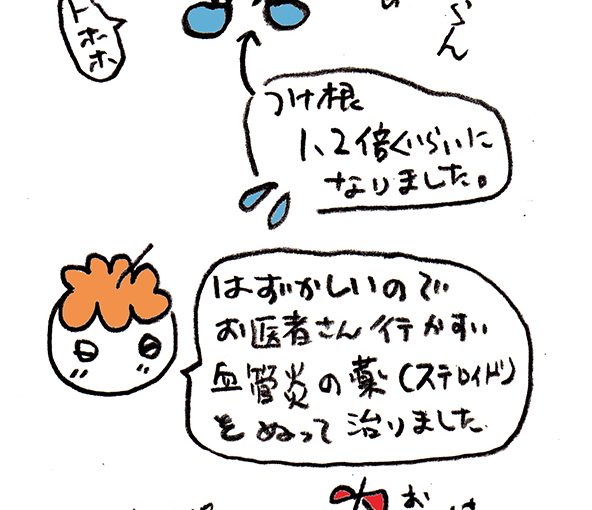 トホホ
つけ根
1、2倍くらいに
なりました。
はずかしいので
お医者さん行かずに
血管炎の薬(ステロイド)
をぬって治りました